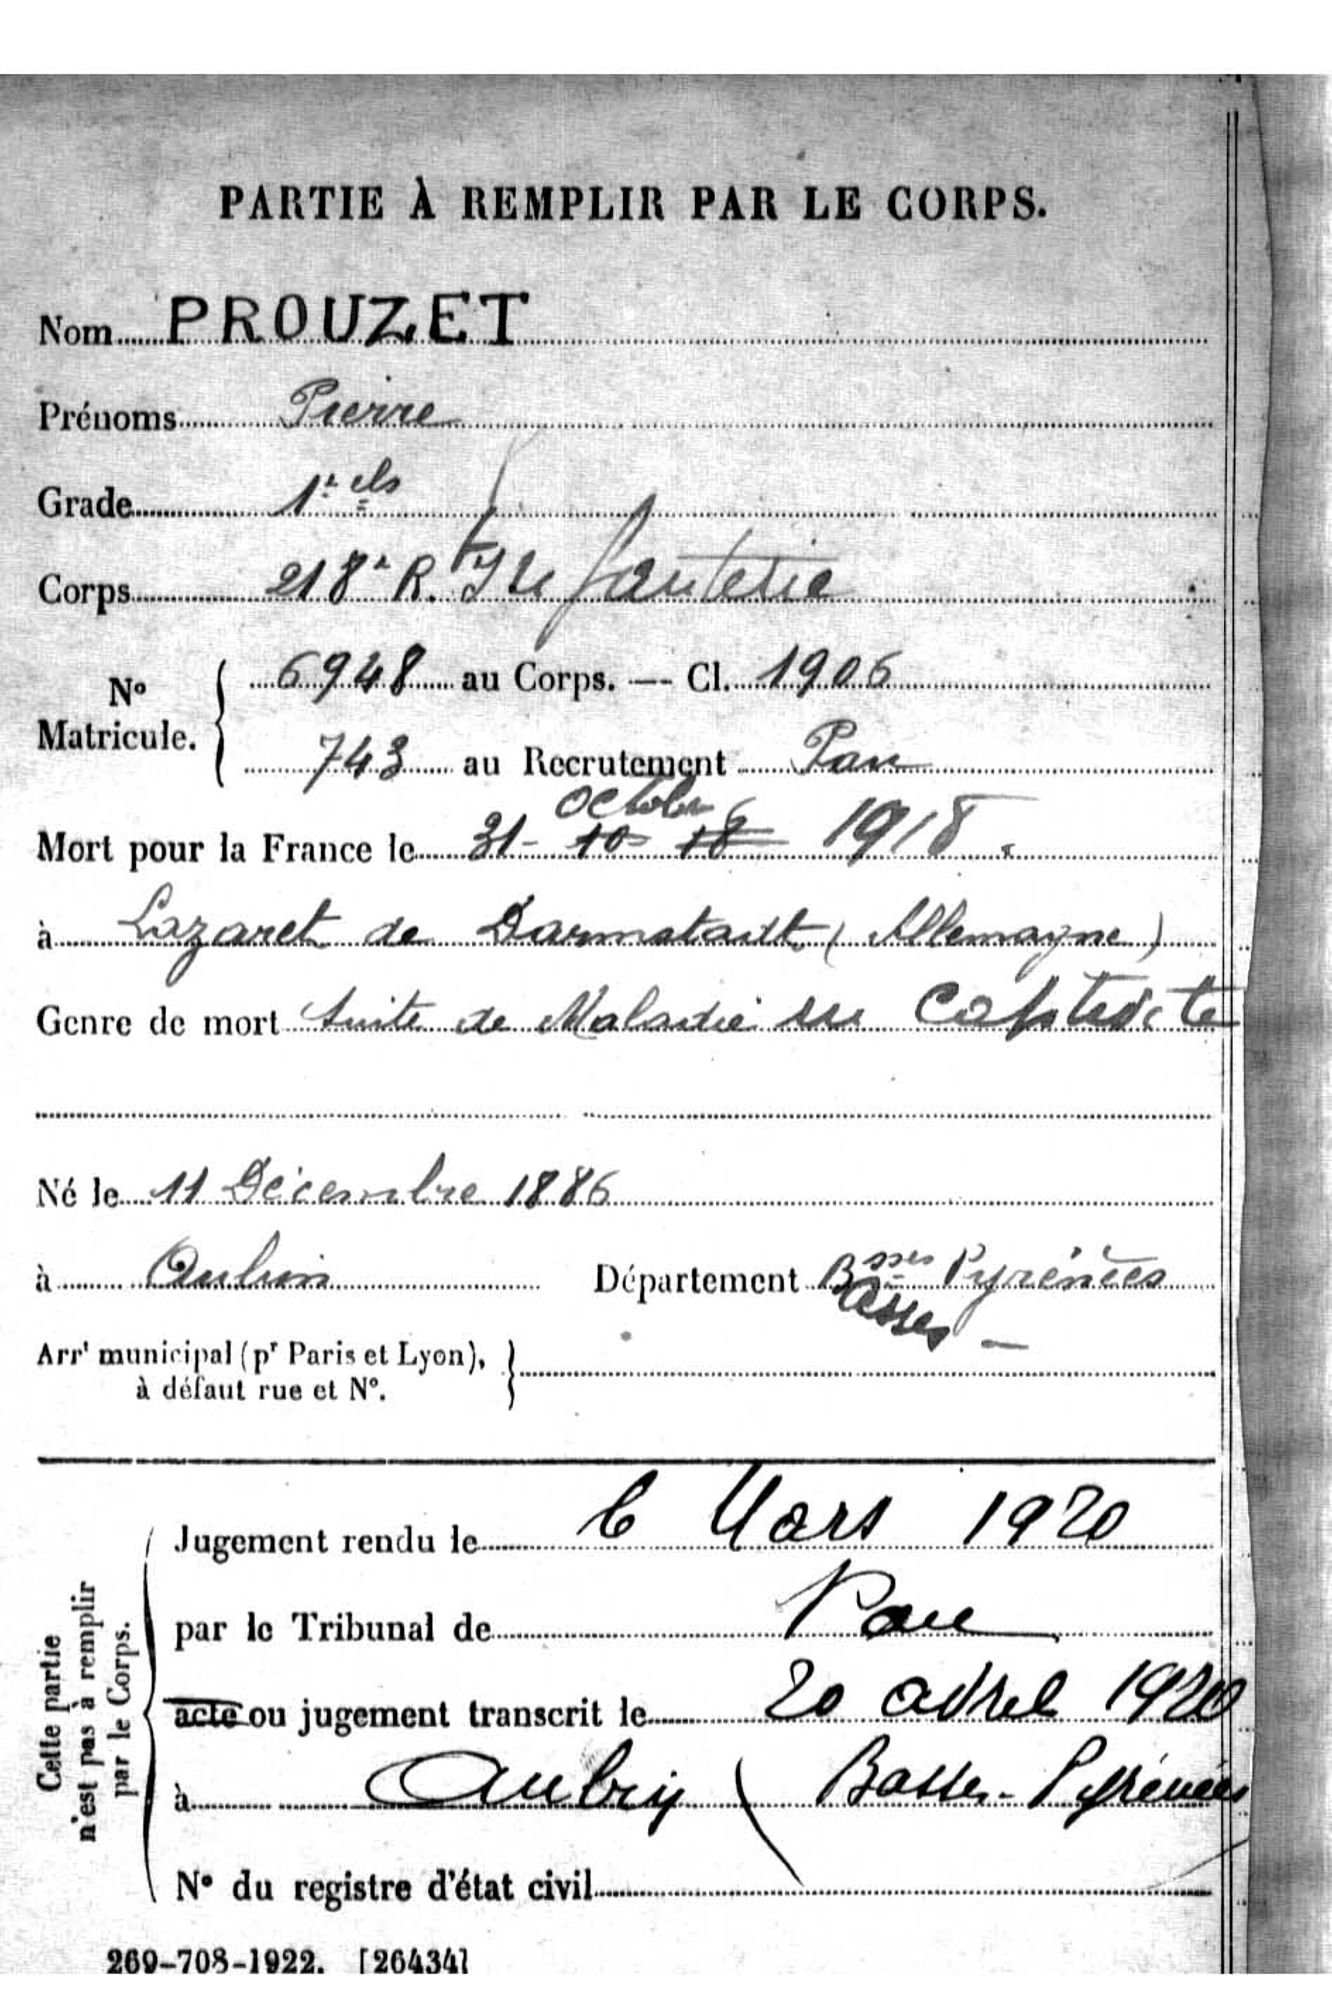 PARTIE À REMPLIR PAR LE CORPS.
Nom PROUZET
Prénoms Pierre
Grade 1re cls
Corps 218e R. t Infanterie
No Matricule. { 6948 au Corps. — Cl. 1906
743 au Recrutement Pau
octobre
Mort pour la France le 31- 10 18 1918.
à Lazaret de Darmstadt (Allemagne)
Genre de mort Suite de Maladie en Captivité
Né le 11 Décembre 1886
à Aubin Département Bsses Pyrénées
Basses —
Arrt municipal (pr Paris et Lyon), }
à défaut rue et No.
Cette partie
n'est pas à remplir
par le Corps.
Jugement rendu le 6 Mars 1920
par le Tribunal de Pau
acte ou jugement transcrit le 20 avril 1920
à Aubin (Basses-Pyrénées
No du registre d'état civil
269-708-1922. [26434]